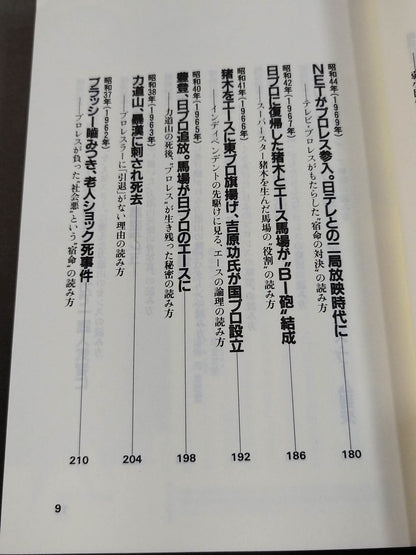 昭和44年(1969年)
NETがプロレス参入。日テレとの二局放映時代に
―テレビとプロレスがもたらした“宿命の対決”の読み方
180
昭和42年(1967年)
日プロに復帰した猪木とエース馬場が“BI砲”結成
―スーパースター猪木を生んだ馬場の“役割”の読み方
186
昭和41年(1966年)
猪木をエースに東プロ旗揚げ、吉原功氏が国プロ設立
―インディペンデントの先駆けに見る、エースの論理の読み方
192
昭和40年(1965年)
豊登、日プロ追放。馬場が日プロのエースに
―力道山の死後、“プロレス”が生き残った秘密の読み方
198
昭和38年(1963年)
力道山、暴漢に刺され死去
―プロレスラーに“引退”がない理由の読み方
204
昭和37年(1962年)
ブラッシー噛みつき、老人ショック死事件
―プロレスが負った“社会悪”という“宿命”の読み方
210
9